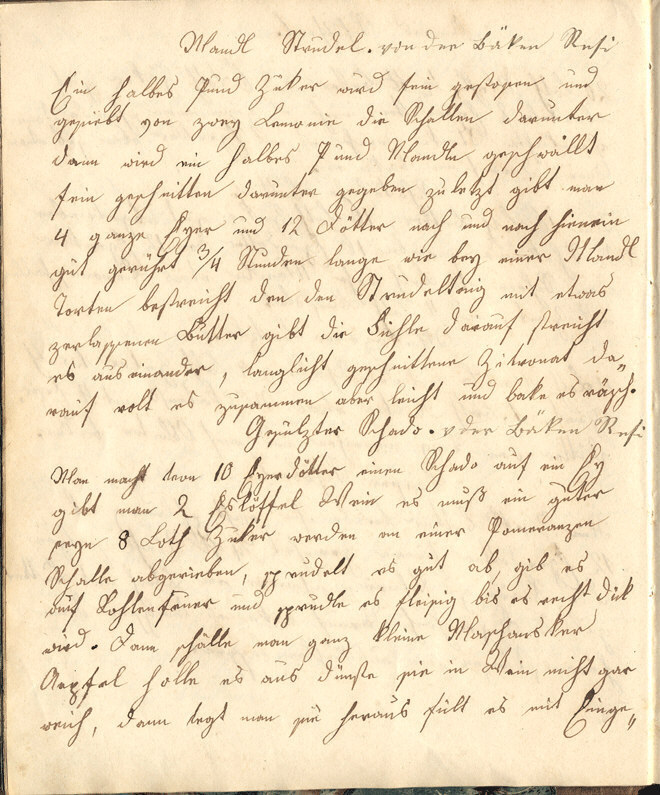 Mandl Strudel. von der Bäken Resi
Ein halbes Pund Zuker wird fein gestosen und
gesiebt von zwey Lemonie die Schallen darunter
dann wird ein halbes Pund Mandln geschwällt
fein geschnitten darunter gegeben zuletzt gibt man
4 ganze Eyer und 12 Dötter nach und nach hienein
gut gerührt 3/4 Stunden lange wie bey einer Mandl
Torten bestreicht den den Strudeltaig mit etwas
zerlassenen Butter gibt die Fühle darauf streicht
es auseinander, langlicht geschnittene Zitronat da„
rauf rolt es zusammen aber leicht und bake es räsch.
Gesulzter Schado. v der Bäken Resi
Man macht von 10 Eyerdötter einen Schado auf ein Ey
gibt man 2 Eslöffel Wein es muß ein guter
seyn 8 Loth Zuker werden an einer Pomeranzen
Schalle abgerieben, sprudelt es gut ab, gib es
auf Kohlenfeuer und sprudle es fleisig bis es recht dick
wird. Dann schälle man ganz kleine Maschansker
Aepfel holle es aus dünste sie in Wein nicht gar
weich, dann legt man sie heraus fült es mit Einge„